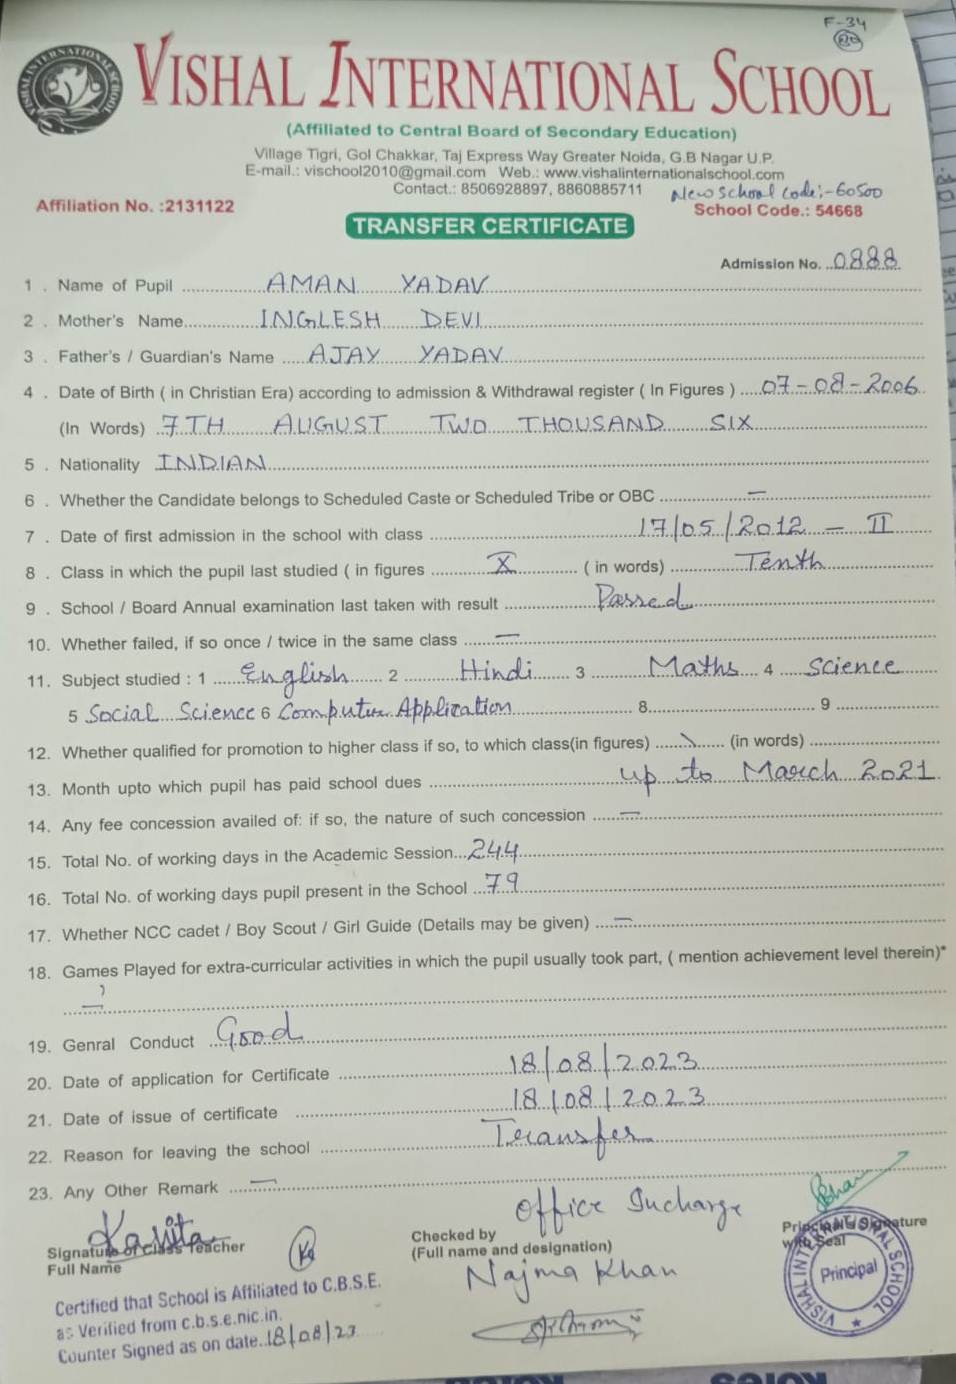 F-34
20
VISHAL INTERNATIONAL SCHOOL
VISHAL INTERNATIONAL SCHOOL
(Affiliated to Central Board of Secondary Education)
Village Tigri, Gol Chakkar, Taj Express Way Greater Noida, G.B Nagar U.P.
E-mail.: vischool2010@gmail.com Web.: www.vishalinternationalschool.com
Contact.: 8506928897, 8860885711 New School Code:-60500
Affiliation No. :2131122 School Code.: 54668
TRANSFER CERTIFICATE
Admission No. 0888
1 . Name of Pupil AMAN YADAV
2 . Mother's Name INGLESH DEVI
3 . Father's / Guardian's Name AJAY YADAV
4 . Date of Birth ( in Christian Era) according to admission & Withdrawal register ( In Figures ) 07-08-2006
(In Words) 7TH AUGUST TWO THOUSAND SIX
5 . Nationality INDIAN
6 . Whether the Candidate belongs to Scheduled Caste or Scheduled Tribe or OBC —
7 . Date of first admission in the school with class 17/05/2012 — II
8 . Class in which the pupil last studied ( in figures X ( in words) Tenth
9 . School / Board Annual examination last taken with result Passed
10. Whether failed, if so once / twice in the same class —
11. Subject studied : 1 English 2 Hindi 3 Maths 4 Science
5 Social Science 6 Computer Application 8 9
12. Whether qualified for promotion to higher class if so, to which class(in figures) \ (in words)
13. Month upto which pupil has paid school dues up to March 2021
14. Any fee concession availed of: if so, the nature of such concession —
15. Total No. of working days in the Academic Session 244
16. Total No. of working days pupil present in the School 79
17. Whether NCC cadet / Boy Scout / Girl Guide (Details may be given) —
18. Games Played for extra-curricular activities in which the pupil usually took part, ( mention achievement level therein)*
—
19. Genral Conduct Good
20. Date of application for Certificate 18/08/2023
21. Date of issue of certificate 18/08/2023
22. Reason for leaving the school Transfer
23. Any Other Remark —
Kavita
Signature of Class Teacher
Full Name
Office Incharge
Checked by
(Full name and designation)
Najma Khan
Principal Signature
with Seal
VISHAL INTERNATIONAL SCHOOL
Principal
Certified that School is Affiliated to C.B.S.E.
as Verified from c.b.s.e.nic.in.
Counter Signed as on date..18/08/23